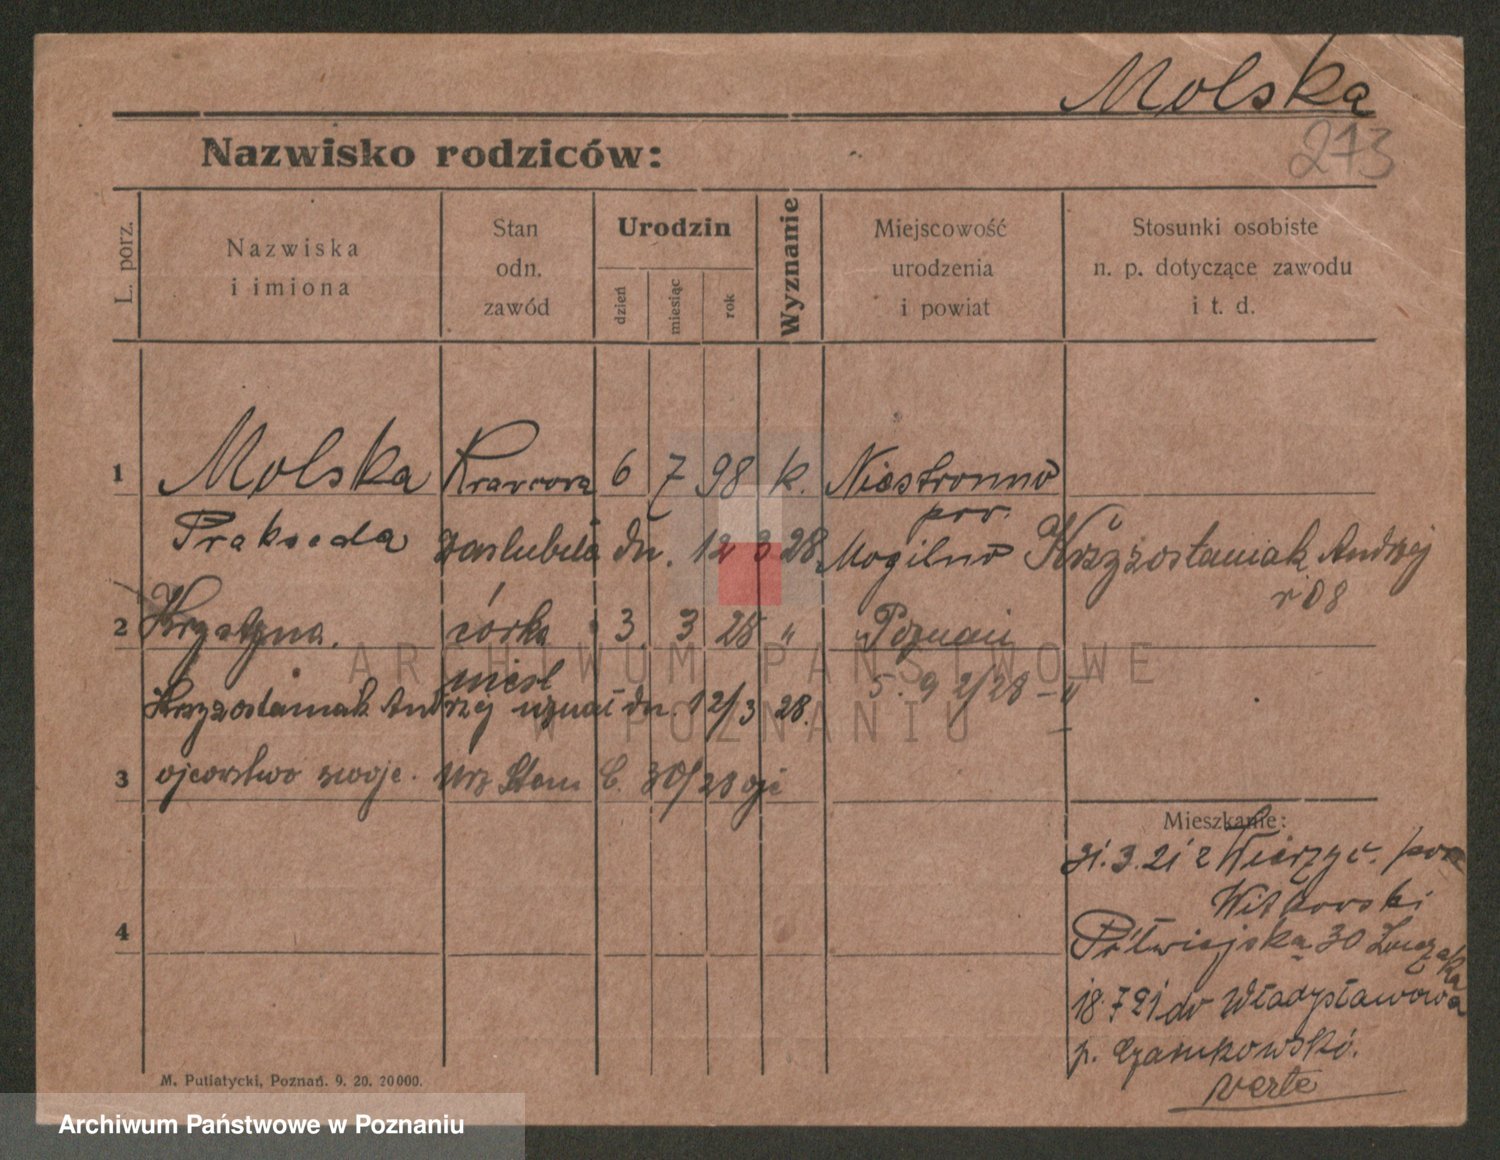 Molska
273
Nazwisko rodziców:
L. porz.
Nazwiska
i imiona
Stan
odn.
zawód
Urodzin
dzień
miesiąc
rok
Wyznanie
Miejscowość
urodzenia
i powiat
Stosunki osobiste
n. p. dotyczące zawodu
i t. d.
1 Molska Krawcowa 6 7 98 k. Niestronno
pow.
Prakseda zaslubiła dn. 12 3 28 Mogilno Krzyżostaniak Andrzej
r 08
2 Krystyna. córka 3 3 28 " Poznań
nieśl 5. 9 2/28 - "
Krzyżostaniak Andrzej uznał dn. 12/3 28.
3 ojcowstwo swoje. Urz Stanu C. 30/28
4
Mieszkanie:
31. 3. 21 z Wierzyc. pow
Witkowski
Półwiejska 30
18. 7 21 do Władysławowa
p. Czarnkowski.
verte
M. Putiatycki, Poznań. 9. 20. 20000.
ARCHIWUM PAŃSTWOWE
W POZNANIU
Archiwum Państwowe w Poznaniu